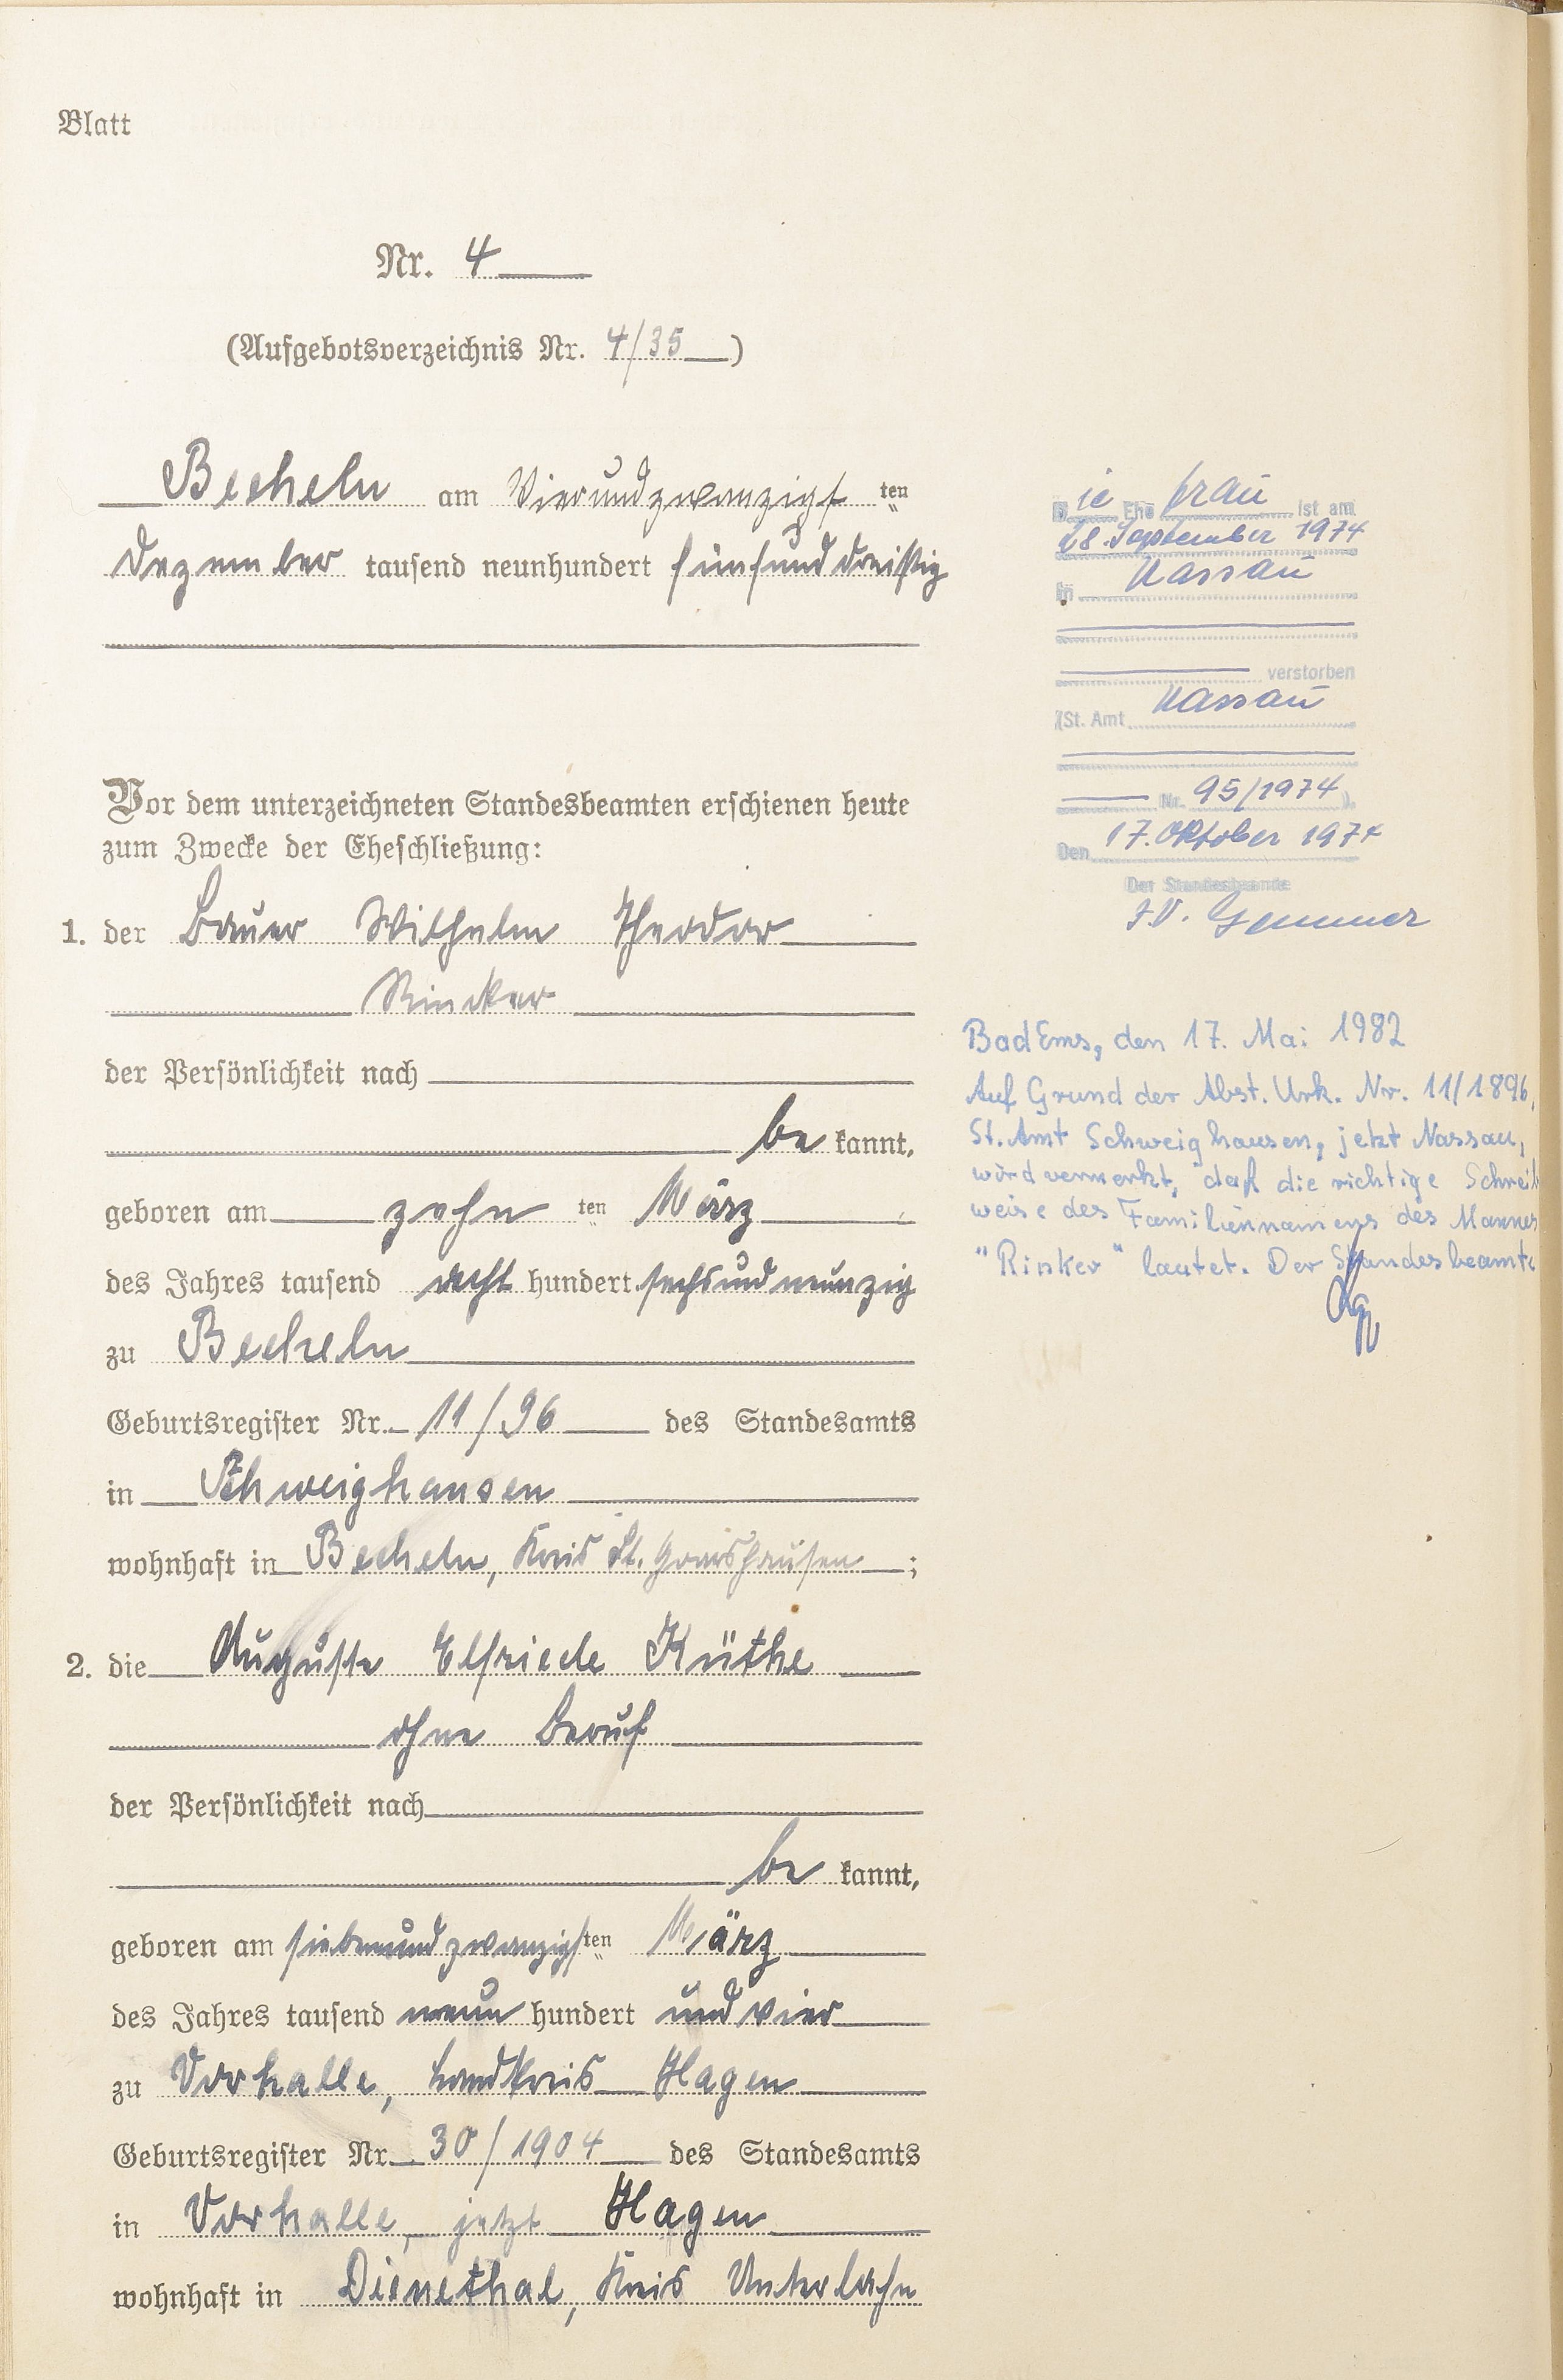 Blatt
Nr. 4
(Aufgebotsverzeichnis Nr. 4/35)
Becheln am Vierundzwanzigst ten
Dezember tausend neunhundert fünfunddreißig
Vor dem unterzeichneten Standesbeamten erschienen heute
zum Zwecke der Eheschließung:
1. der Bauer Wilhelm Theodor
Rincker
der Persönlichkeit nach
be kannt,
geboren am zehn ten März
des Jahres tausend acht hundert sechsundneunzig
zu Becheln
Geburtsregister Nr. 11/96 des Standesamts
in Schweighausen
wohnhaft in Becheln, Kreis St. Goarshausen ;
2. die Auguste Elfriede Küthe
ohne Beruf
der Persönlichkeit nach
be kannt,
geboren am siebenundzwanzigst ten März
des Jahres tausend neun hundert und vier
zu Vorhalle, Landkreis Hagen
Geburtsregister Nr. 30/1904 des Standesamts
in Vorhalle, jetzt Hagen
wohnhaft in Dienethal, Kreis Unterlahn
Die Ehefrau ist am
28. September 1974
in Nassau
verstorben
(St. Amt Nassau
Nr. 95/1974).
Den 17. Oktober 1974
Der Standesbeamte
I.V. Gemmer
Bad Ems, den 17. Mai 1982
Auf Grund der Abst. Urk. Nr. 11/1896,
St. Amt Schweighausen, jetzt Nassau,
wird vermerkt, daß die richtige Schreib
weise des Familiennamens des Mannes
"Rinker" lautet. Der Standesbeamte